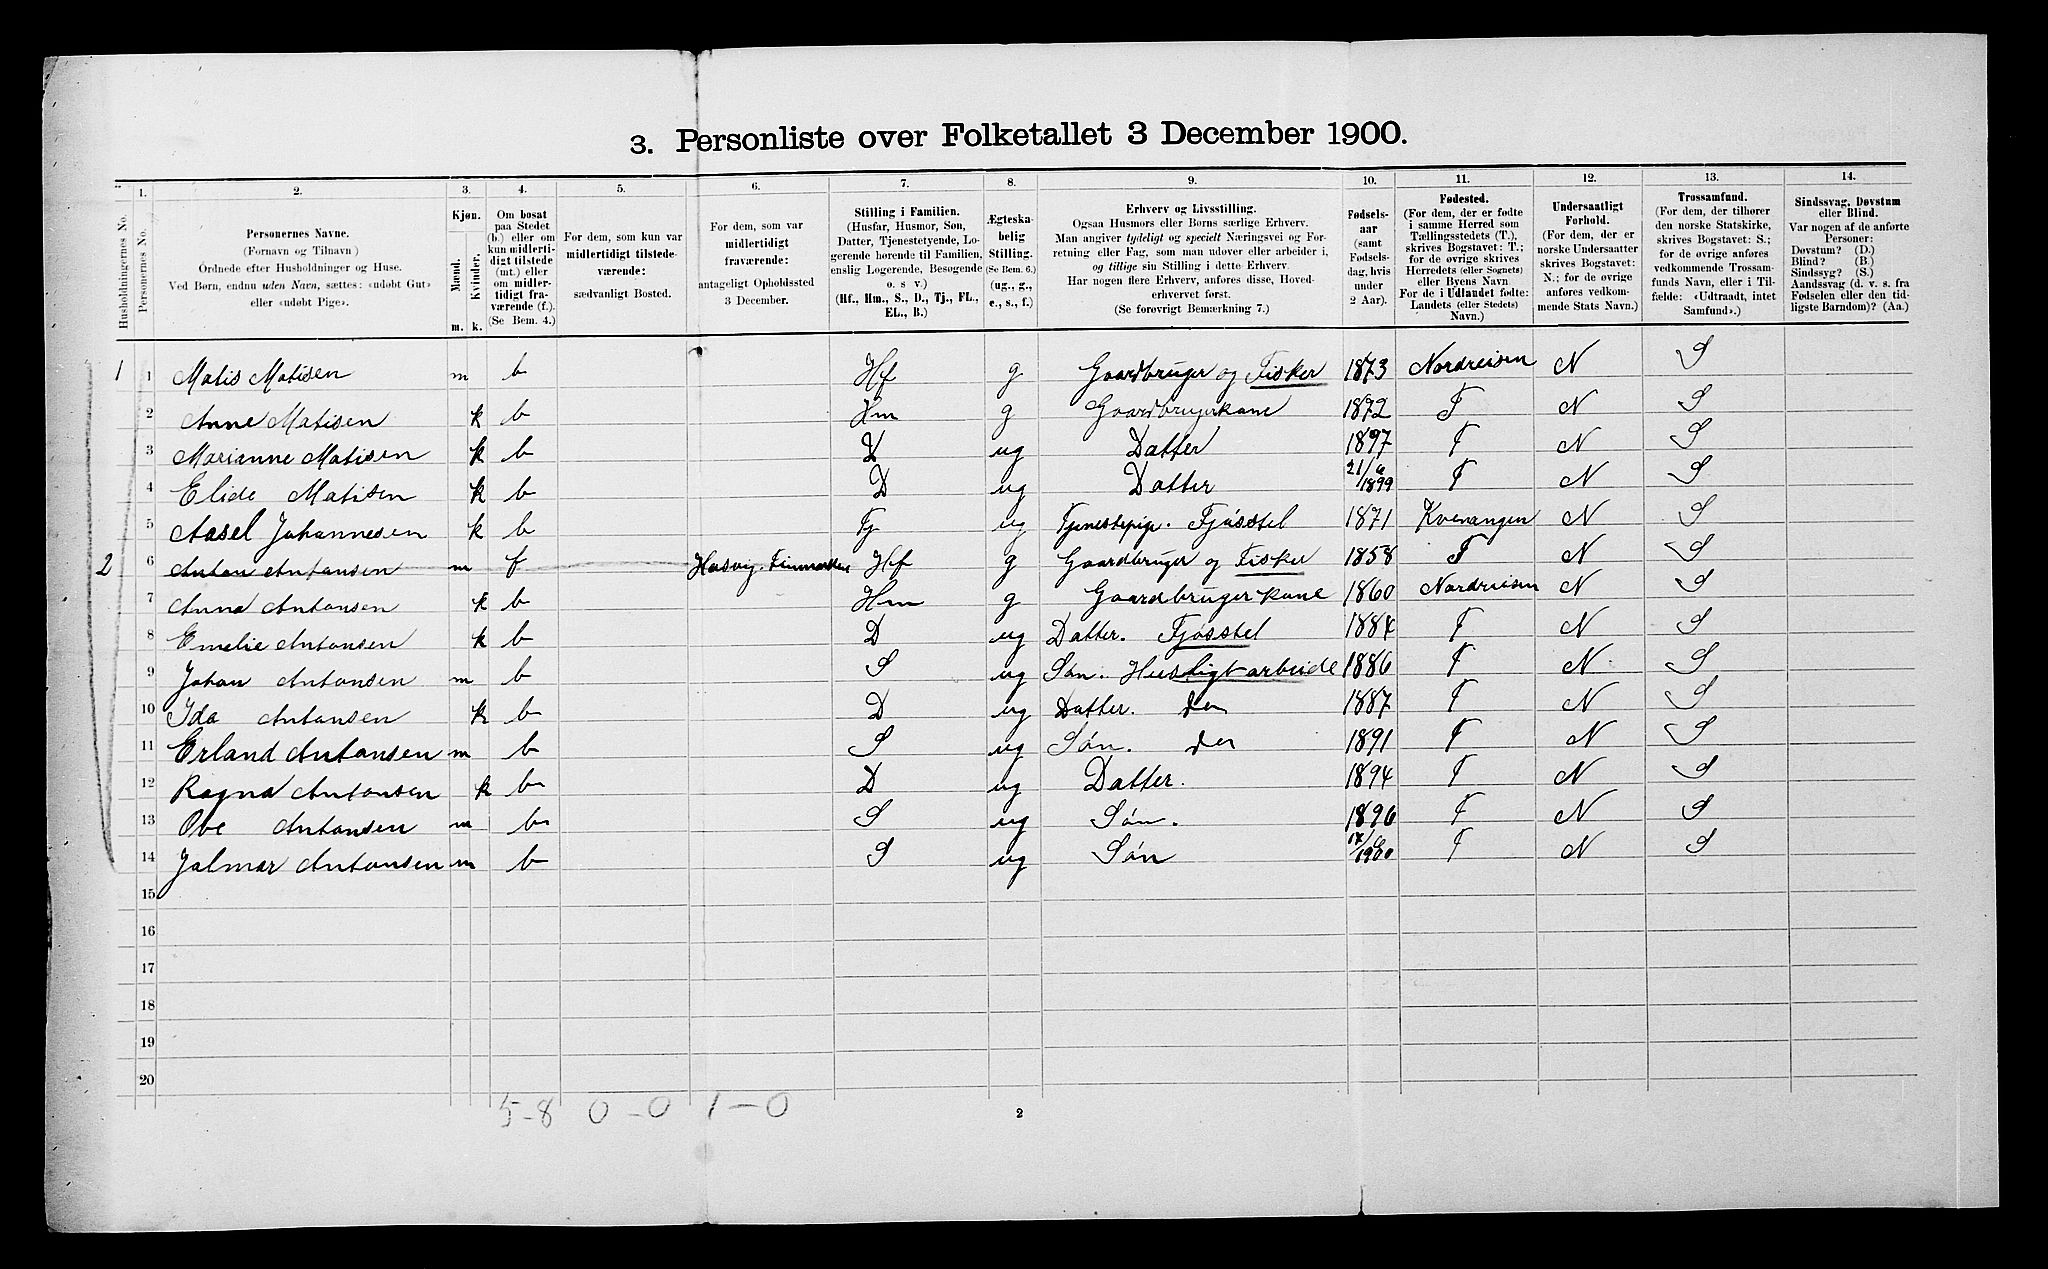 3. Personliste over Folketallet 3 December 1900.
1. 2. 3. 4. 5. 6. 7. 8. 9. 10. 11. 12. 13. 14.
Husholdningernes No.
Personernes No.
Personernes Navne.
(Fornavn og Tilnavn)
Ordnede efter Husholdninger og Huse.
Ved Børn, endnu uden Navn, sættes: «udøbt Gut»
eller «udøbt Pige».
Kjøn.
Mænd.
Kvinder.
m. k.
Om bosat
paa Stedet
(b.) eller om
kun midlerti-
digt tilstede
(mt.) eller
om midler-
tidigt fra-
værende (f.).
(Se Bem. 4.)
For dem, som kun var
midlertidigt tilstede-
værende:
sædvanligt Bosted.
For dem, som var
midlertidigt
fraværende:
antageligt Opholdssted
3 December.
Stilling i Familien.
(Husfar, Husmor, Søn,
Datter, Tjenestetyende, Lo-
gerende hørende til Familien,
enslig Logerende, Besøgende
o. s v.)
(Hf., Hm., S., D., Tj., FL.,
EL., B.)
Ægteska-
belig
Stilling.
(Se Bem. 6.)
(ug., g.,
e., s., f.)
Erhverv og Livsstilling.
Ogsaa Husmors eller Børns særlige Erhverv.
Man angiver tydeligt og specielt Næringsvei og For-
retning eller Fag, som man udøver eller arbeider i,
og tillige sin Stilling i dette Erhverv.
Har nogen flere Erhverv, anføres disse, Hoved-
erhvervet først.
(Se forøvrigt Bemærkning 7.)
Fødsels-
aar
(samt
Fødsels-
dag, hvis
under
2 Aar).
Fødested.
(For dem, der er fødte
i samme Herred som
Tællingsstedets (T.),
skrives Bogstavet: T.;
for de øvrige skrives
Herredets (eller Sognets)
eller Byens Navn
For de i Udlandet fødte:
Landets (eller Stedets)
Navn.)
Undersaatligt
Forhold.
(For dem, der er
norske Undersaatter
skrives Bogstavet:
N.; for de øvrige
anføres vedkom-
mende Stats Navn.)
Trossamfund.
(For dem, der tilhører
den norske Statskirke,
skrives Bogstavet: S.;
for de øvrige anføres
vedkommende Trossam-
funds Navn, eller i Til-
fælde: «Udtraadt, intet
Samfund».)
Sindssvag, Døvstum
eller Blind.
Var nogen af de anførte
Personer:
Døvstum? (D.)
Blind? (B.)
Sindssyg? (S.)
Aandssvag (d. v. s. fra
Fødselen eller den tid-
ligste Barndom)? (Aa.)
1 1 Matis Matisen m b Hf g Gaardbruger og Fisker 1873 Nordreisen N S
2 Anne Matisen k b Hm g Gaardbrugerkone 1872 T N S
3 Marianne Matisen k b D ug Datter 1897 T N S
4 Elide Matisen k b D ug Datter 21/6 1899 T N S
5 Aasel Johannesen k b Tj ug Tjenestepige. Fjösstel 1871 Kvenangen N S
2 6 Anton Antonsen m f Hasvig. Finmarken Hf g Gaardbruger og Fisker 1858 T N S
7 Anna Antonsen k b Hm g Gaardbrugerkone 1860 Nordreisen N S
8 Emelie Antonsen k b D ug Datter. Fjösstel 1884 T N S
9 Johan Antonsen m b S ug Søn. Husligt arbeide 1886 T N S
10 Ida Antonsen k b D ug Datter. do 1887 T N S
11 Erland Antonsen m b S ug Søn. do 1891 T N S
12 Ragna Antonsen k b D ug Datter. 1894 T N S
13 Ove Antonsen m b S ug Søn. 1896 T N S
14 Jalmar Antonsen m b S ug Søn 1900 T N S
15
16
17
18
19
20
5-8 0-0 1-0
2